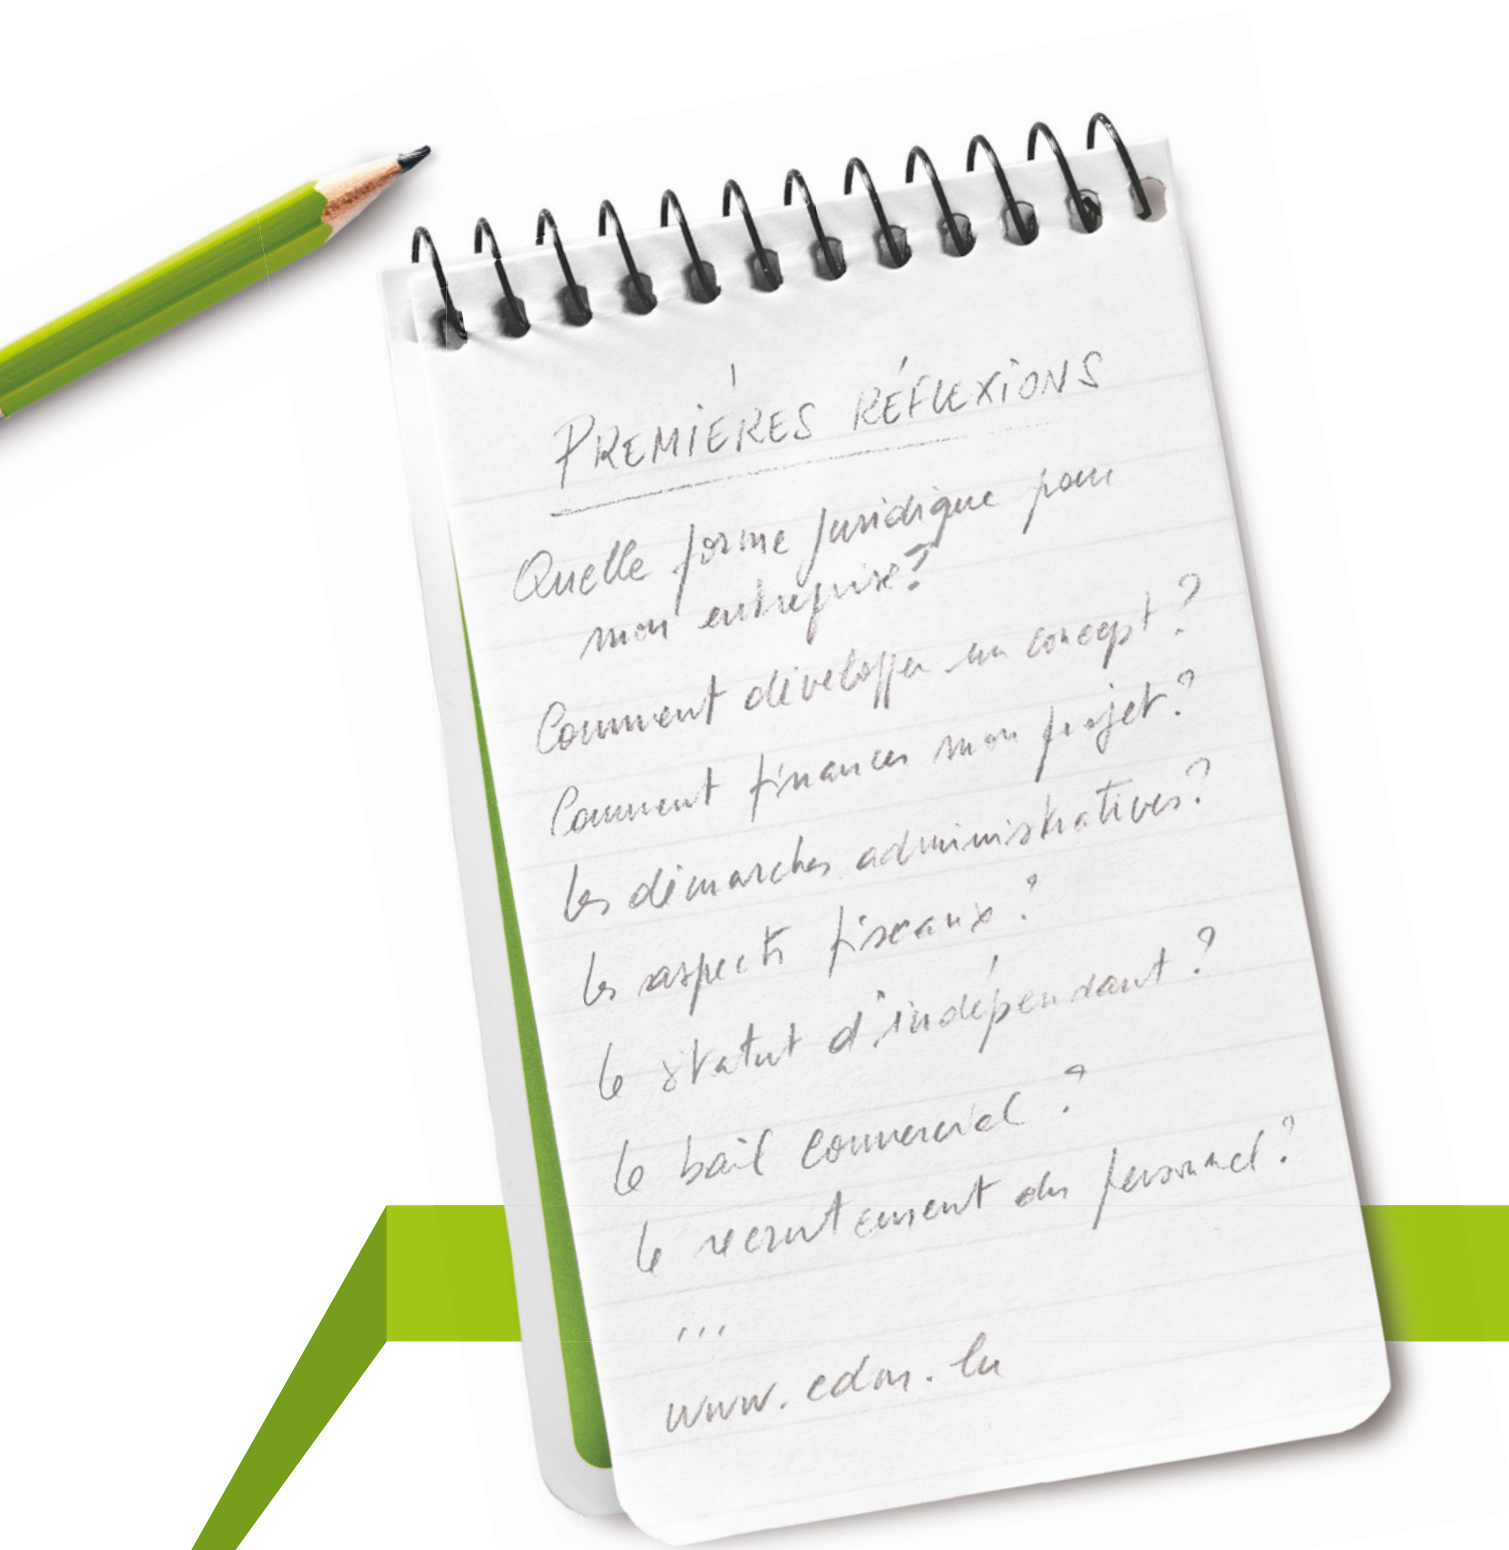 PREMIÈRES RÉFLEXIONS
Quelle forme juridique pour
mon entreprise?
Comment développer un concept?
Comment financer mon projet?
les démarches administratives?
les aspects fiscaux?
le statut d'indépendant?
le bail commercial?
le recrutement du personnel?
...
www.cdm.lu